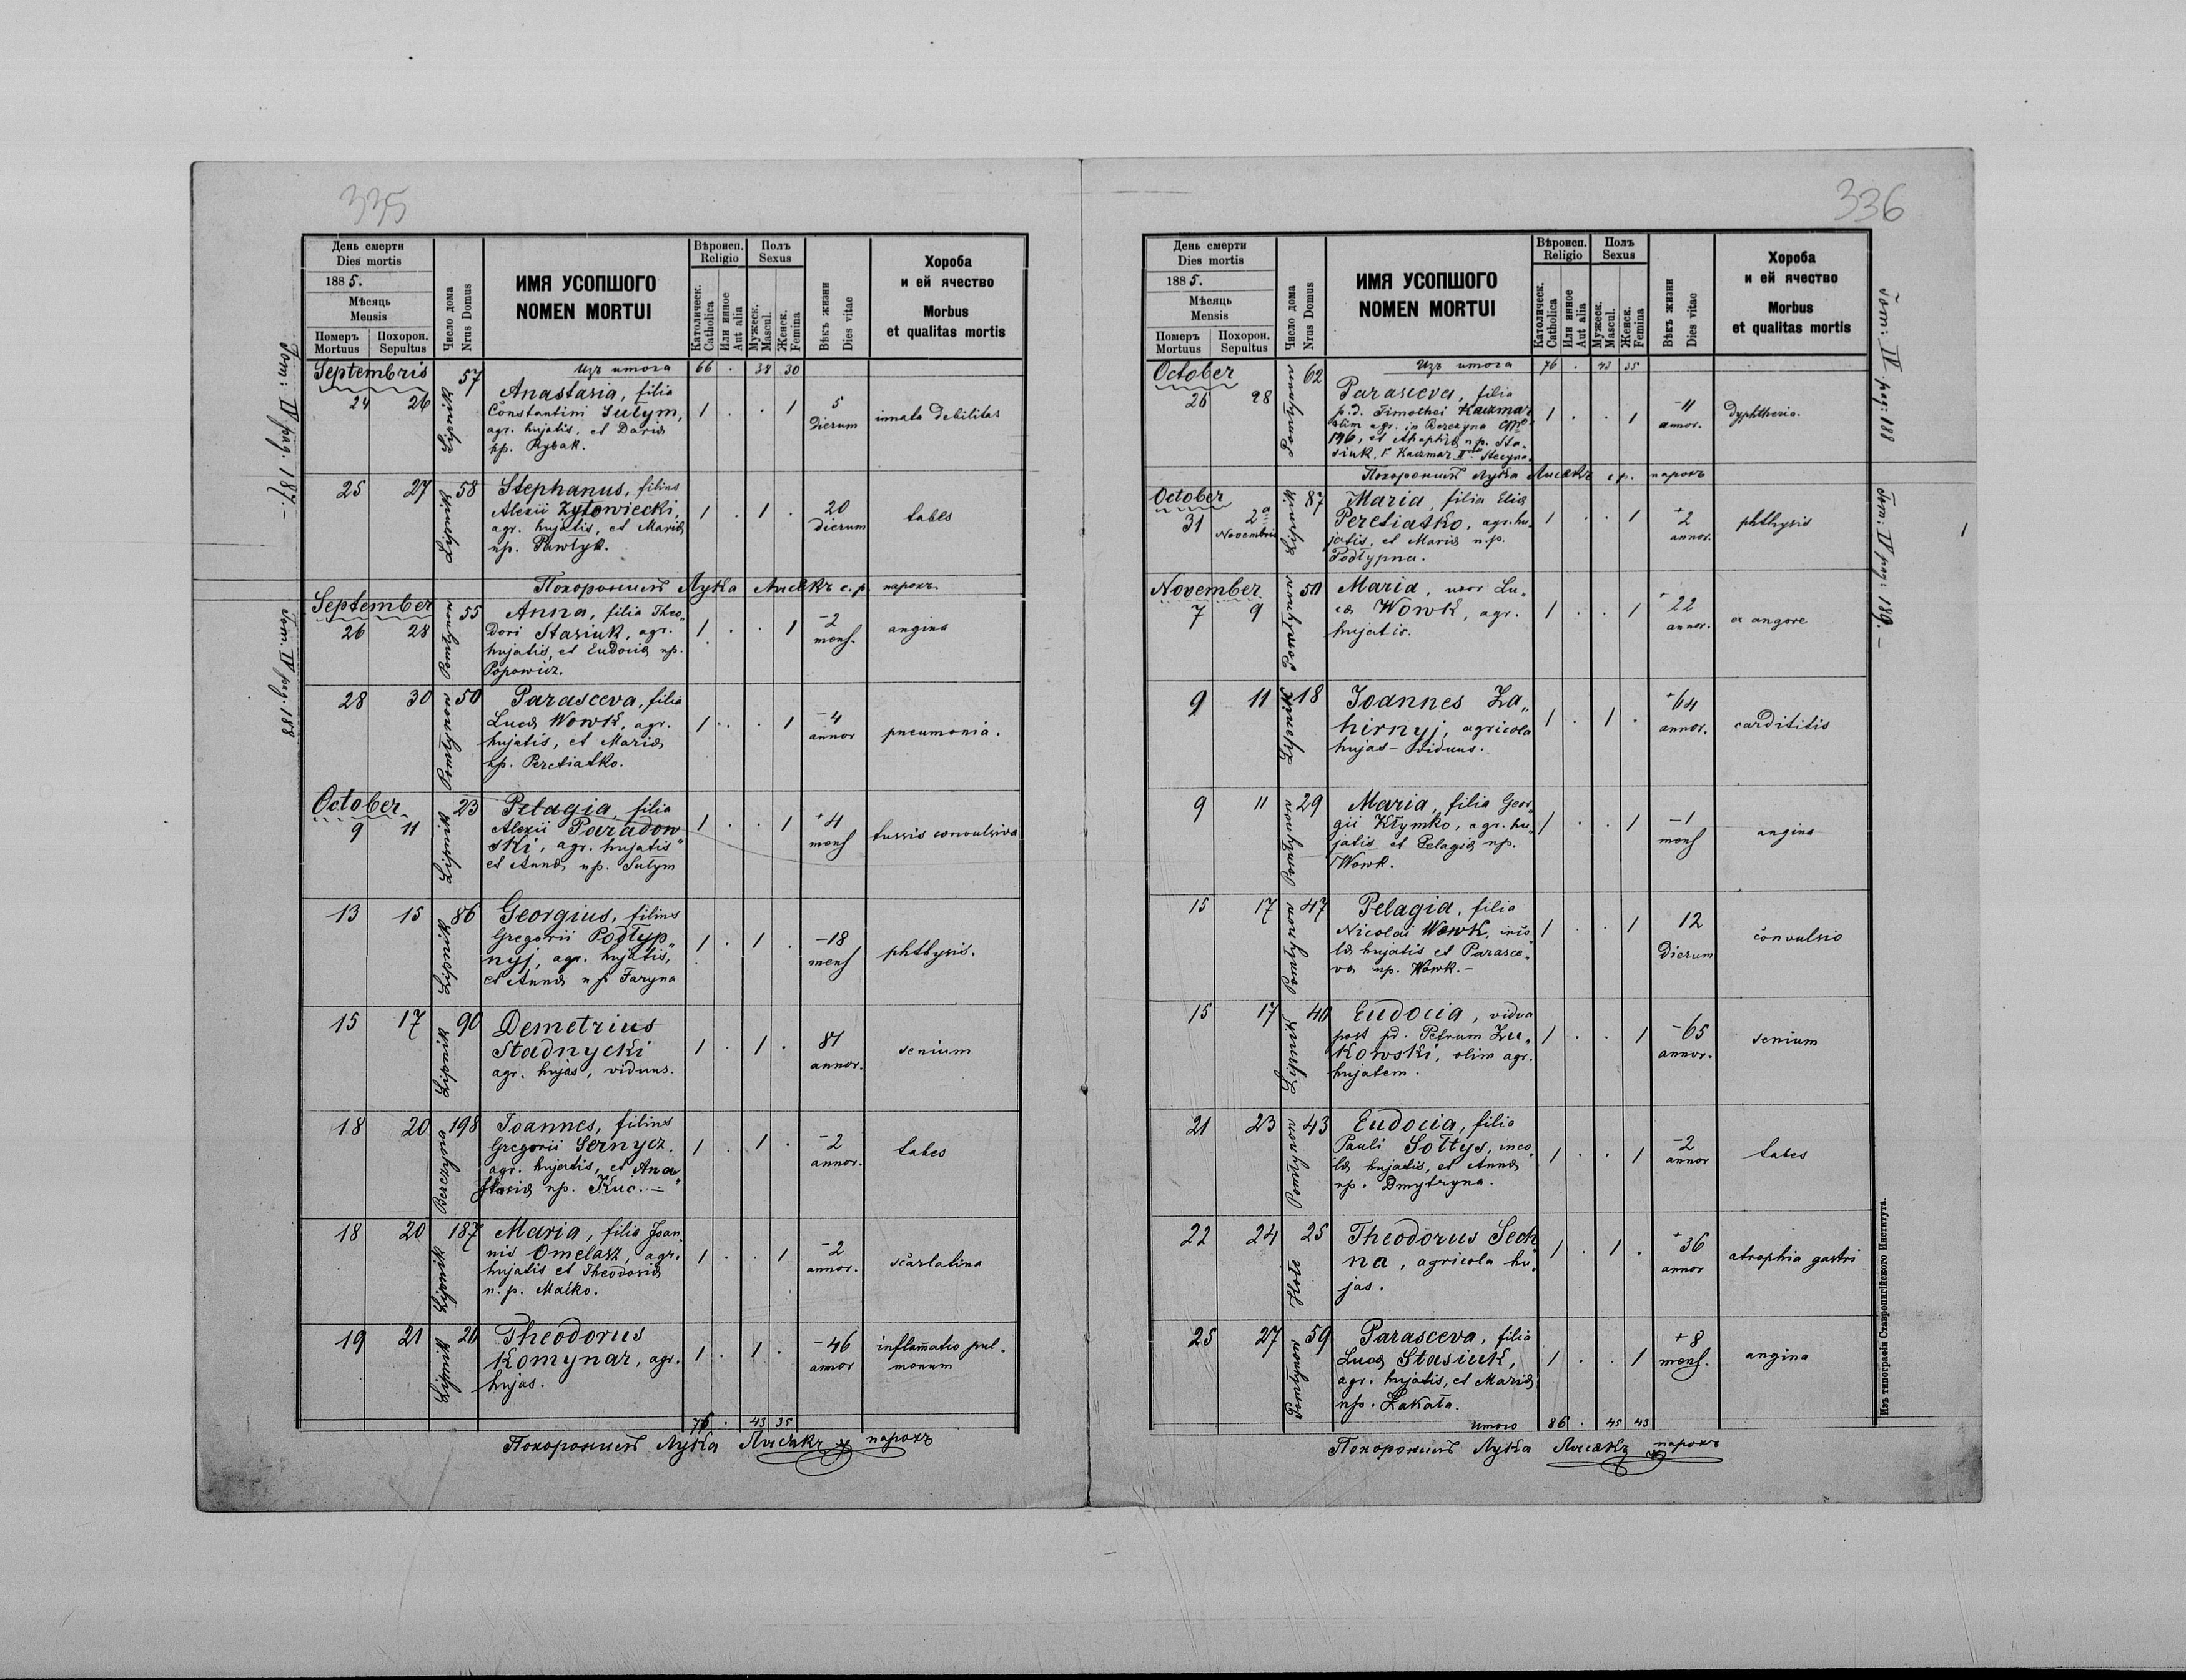 335
Tom: IV pag. 187. –
Tom. IV pag. 188
День смерти
Dies mortis
1885.
Мѣсяць
Mensis
Померъ
Mortuus
Похорон.
Sepultus
Число дома
Nrus Domus
ИМЯ УСОПШОГО
NOMEN MORTUI
Вѣроисп.
Religio
Католическ.
Catholica
Или инное
Aut alia
Полъ
Sexus
Мужеск.
Mascul.
Женск.
Femina
Вѣкъ жизни
Dies vitae
Хороба
и ей ячество
Morbus
et qualitas mortis
Изъ итога 66 . 38 30
Septembris
24 26 Lipnik 57 Anastasia, filia
Constantini Sułym,
agr. hujatis, et Dariæ
np. Rybak.
1 . . 1 5
dierum
innata debilitas
25 27 Lipnik 58 Stephanus, filius
Alexii Zytowiecki,
agr. hujatis, et Mariæ
np. Pawłyk.
1 . 1 . 20
dierum
tabes
Похоронилъ Лука Лисякъ с. р. парохъ.
September
26 28 55 Anna, filia Theo„
dori Stasiuk, agr.
hujatis, et Eudociæ np.
Popowicz.
1 . . 1 –2
mens.
angina
28 30 50 Parasceva, filia
Lucæ Wowk, agr.
hujatis, et Mariæ
np. Peretiatko.
1 . . 1 –4
annor
pneumonia.
October
9 11 Lipnik 23 Pelagia, filia
Alexii Paradow„
ski, agr. hujatis
et Annæ np. Sułym
1 . . 1 +4
mens
tussis convulsiva
13 15 Lipnik 86 Georgius, filius
Gregorii Podłyp„
nyj, agr. hujatis,
et Annæ np Faryna
1 . 1 . –18
mens
phthysis.
15 17 Lipnik 90 Demetrius
Stadnycki
agr. hujas, viduus.
1 . 1 . 81
annor.
senium
18 20 Berezyna 198 Joannes, filius
Gregorii Sernycz,
agr. hujatis, et Ana„
stasiæ np. Kuc. –
1 . 1 . –2
annor.
tabes
18 20 Lipnik 187 Maria, filia Joan„
nis Omelasz, agr.
hujatis et Theodosiæ
n. p. Maćko.
1 . . 1 –2
annor.
scarlatina
19 21 Lipnik 20 Theodorus
Komynar, agr.
hujas.
1 . 1 . –46
annor
inflam̄atio pul„
monum
76 . 43 35
Похоронилъ Лука Лисякъ парохъ
336
Tom: IV pag: 188
Tom: IV pag: 189. –
День смерти
Dies mortis
1885.
Мѣсяць
Mensis
Померъ
Mortuus
Похорон.
Sepultus
Число дома
Nrus Domus
ИМЯ УСОПШОГО
NOMEN MORTUI
Вѣроисп.
Religio
Католическ.
Catholica
Или инное
Aut alia
Полъ
Sexus
Мужеск.
Mascul.
Женск.
Femina
Вѣкъ жизни
Dies vitae
Хороба
и ей ячество
Morbus
et qualitas mortis
Изъ итога 76 . 43 35
October
26 28 62 Parasceva, filia
p.d. Timothei Kaczmar
olim agr. in Berezyna
196, et np. Sta„
siuk,
1 . . 1 –11
annor.
dyphtheria.
Похоронилъ Лука Лисякъ с р. парохъ
October
31 2a
Novembris
Lipnik 87 Maria, filia Eliæ
Peretiatko, agr. hu„
jatis, et Mariæ n.p.
Podłypna.
1 . . 1 +2
annor.
phthysis
November
7 9 50 Maria, uxor Lu„
cæ Wowk, agr.
hujatis.
1 . . 1 +22
annor.
ex angore
9 11 Lipnik 18 Joannes Za„
hirnyj, agricola
hujas – viduus.
1 . 1 . +64
annor.
cardititis
9 11 29 Maria, filia Geor„
gii Kłymko, agr. hu„
jatis et Pelagiæ np.
Wowk.
1 . . 1 –1
mens
angina
15 17 47 Pelagia, filia
Nicolai Wowk, inco„
læ hujatis et Parasce„
væ np. Wowk. –
1 . . 1 12
dierum
convulsio
15 17 Lipnik 40 Eudocia, vidua
post pd. Petrum Zu„
kowski, olim agr.
hujatem.
1 . . 1 –65
annor.
senium
21 23 43 Eudocia, filia
Pauli Sołtys, inco„
læ hujatis, et Annæ
np. Dmytryna.
1 . . 1 –2
annor
tabes
22 24 25 Theodorus Sech
na, agricola hu„
jas.
1 . 1 . +36
annor
atrophia gastri
25 27 59 Parasceva, filia
Lucæ Stasiuk,
agr. hujatis, et Mariæ
np. Łakata.
1 . . 1 +8
mens.
angina
итого 86 . 45 43
Похоронилъ Лука Лисякъ парохъ
Изъ типографіи Ставропигійского Института.